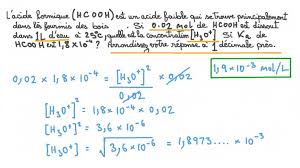 L'acide formique (HCOOH) est un acide faible qui se trouve principalement
dans les fourmis des bois. Si 0.02 mol de HCOOH est dissout
dans 1L d'eau à 25°C, quelle est la concentration [H₃O⁺] Si Ka de
HCOOH est 1,8×10⁻⁴? Arrondissez votre réponse à 1 décimale près.
1,9×10⁻³ mol/L
0,02 × 1,8×10⁻⁴ = [H₃O⁺]² × 0,02
0,02
[H₃O⁺]² = 1,8×10⁻⁴ × 0,02
[H₃O⁺]² = 3,6×10⁻⁶
[H₃O⁺] = √3,6×10⁻⁶ = 1,8973.... × 10⁻³